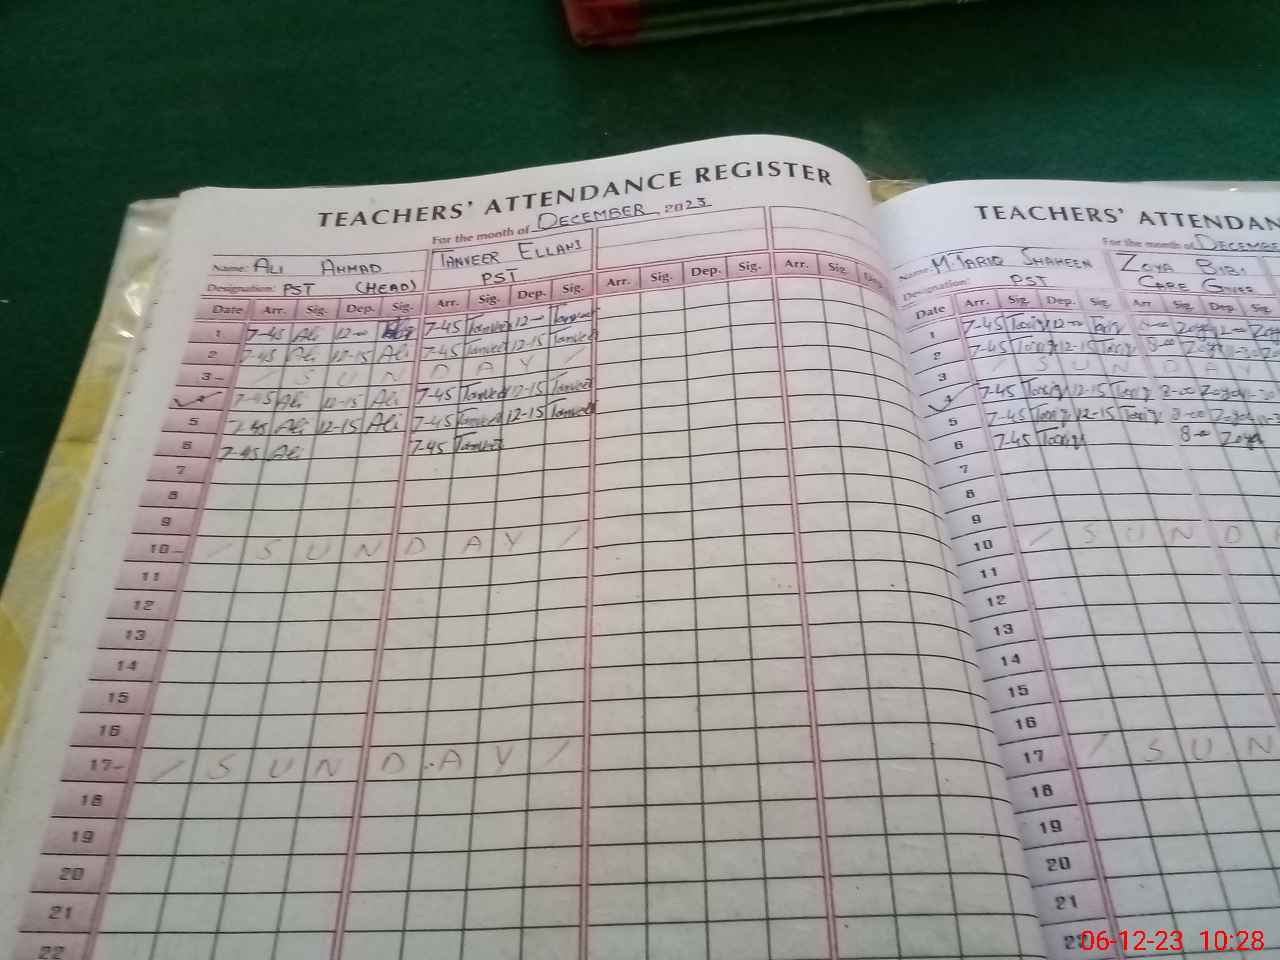 TEACHERS' ATTENDANCE REGISTER
For the month of DECEMBER 2023
Name: ALI AHMAD TANVEER ELLAHI
Designation: PST (HEAD) PST
Date Arr. Sig. Dep. Sig. Arr. Sig. Dep. Sig. Arr. Sig. Dep. Sig. Arr. Sig.
1 7-45 Ali 12-00 7-45 Tanveer 12-00 Tanveer
2 7-45 Ali 12-15 Ali 7-45 Tanveer 12-15 Tanveer
3 - / S U N D A Y /
4 7-45 Ali 12-15 Ali 7-45 Tanveer 12-15 Tanveer
5 7-45 Ali 12-15 Ali 7-45 Tanveer 12-15 Tanveer
6 7-45 Ali 7-45 Tanveer
7
8
9
10 - / S U N D A Y /
11
12
13
14
15
16
17 - / S U N D A Y /
18
19
20
21
22
TEACHERS' ATTENDAN
For the month of DECEMBE
Name: M. TARIQ SHAHEEN ZOYA BIBI
Designation: PST CARE GIVER
Date Arr. Sig. Dep. Sig. Arr. Sig. Dep. Sig.
1 7-45 Tariq 12-00 Tariq 8-00 Zoya
2 7-45 Tariq 12-15 Tariq 8-00 Zoya
3 / S U N D A Y
4 7-45 Tariq 12-15 Tariq 8-00 Zoya
5 7-45 Tariq 12-15 Tariq 8-00 Zoya
6 7-45 Tariq 8-00 Zoya
7
8
9
10 / S U N D
11
12
13
14
15
16
17 / S U N
18
19
20
21
06-12-23 10:28